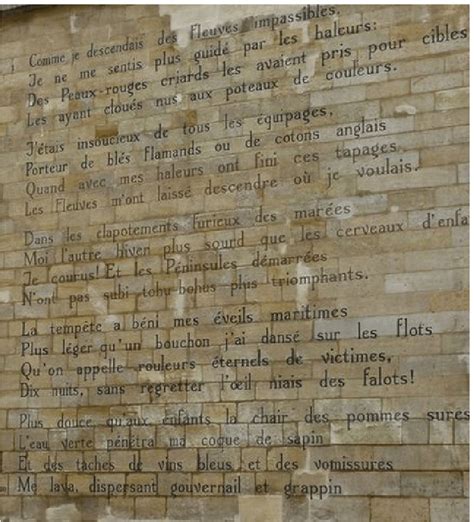 Comme je descendais des Fleuves impassibles,
Je ne me sentis plus guidé par les haleurs:
Des Peaux-rouges criards les avaient pris pour cibles
Les ayant cloués nus aux poteaux de couleurs.
J'étais insoucieux de tous les équipages,
Porteur de blés Flamands ou de cotons anglais
Quand avec mes haleurs ont fini ces tapages,
Les Fleuves m'ont laissé descendre où je voulais.
Dans les clapotements furieux des marées
Moi l'autre hiver plus sourd que les cerveaux d'enfa
Je courus! Et les Péninsules démarrées
N'ont pas subi tohu-bohus plus triomphants.
La tempête a béni mes éveils maritimes
Plus léger qu'un bouchon j'ai dansé sur les flots
Qu'on appelle rouleurs éternels de victimes,
Dix nuits, sans regretter l'œil niais des falots!
Plus douce qu'aux enfants la chair des pommes sures
L'eau verte pénétra ma coque de sapin
Et des taches de vins bleus et des vomissures
Me lava, dispersant gouvernail et grappin